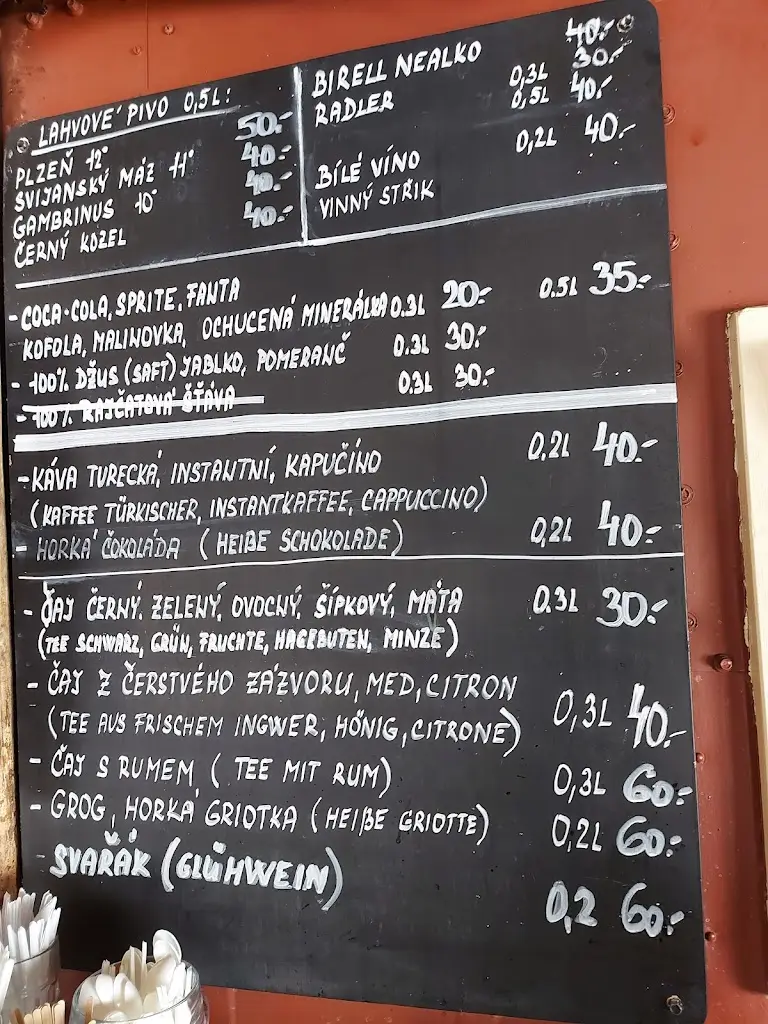 LAHVOVÉ PIVO 0,5L:
PLZEŇ 12° 50.-
SVIJANSKÝ MÁZ 11° 40.-
GAMBRINUS 10° 40.-
ČERNÝ KOZEL 40.-
BIRELL NEALKO 40.-
RADLER 0,3L 30.-
0,5L 40.-
BÍLÉ VÍNO 0,2L 40.-
VINNÝ STŘIK
- COCA-COLA, SPRITE, FANTA
KOFOLA, MALINOVKA, OCHUCENÁ MINERÁLKA 0.3L 20.- 0.5L 35.-
- 100% DŽUS (SAFT) JABLKO, POMERANČ 0.3L 30.-
- 100% RAJČATOVÁ ŠŤÁVA 0.3L 30.-
- KÁVA TURECKÁ, INSTANTNÍ, KAPUČÍNO 0,2L 40.-
(KAFFEE TÜRKISCHER, INSTANTKAFFEE, CAPPUCCINO)
- HORKÁ ČOKOLÁDA (HEIßE SCHOKOLADE) 0,2L 40.-
- ČAJ ČERNÝ, ZELENÝ, OVOCNÝ, ŠÍPKOVÝ, MÁTA 0.3L 30.-
(TEE SCHWARZ, GRÜN, FRUCHTE, HAGEBUTEN, MINZE)
- ČAJ Z ČERSTVÉHO ZÁZVORU, MED, CITRON
(TEE AUS FRISCHEM INGWER, HÖNIG, CITRONE) 0,3L 40.-
- ČAJ S RUMEM (TEE MIT RUM) 0,3L 60.-
- GROG, HORKÁ GRIOTKA (HEIßE GRIOTTE) 0,2L 60.-
- SVAŘÁK (GLÜHWEIN) 0,2 60.-